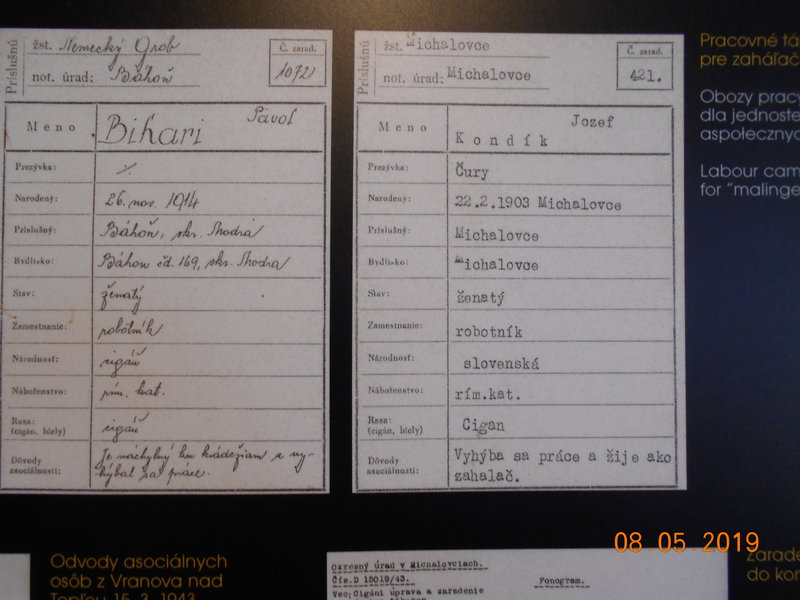 Príslušnú
žst. Nemecký Grob
not. úrad: Báhoň
Č. zarad.
1072
Meno
Bihari
Pavol
Prezývka: ./.
Narodený: 26. nov. 1914
Príslušný: Báhoň, okr. Modra
Bydlisko: Báhoň čd. 169, okr. Modra
Stav: ženatý
Zamestnanie: robotník
Národnosť: cigáň
Náboženstvo: rím. kat.
Rasa: cigáň
(cigán, biely)
Dôvody Je náchylný ku krádežiam a vy-
asociálnosti: hýbal sa práce.
Príslušnú
žst. Michalovce
not. úrad: Michalovce
Č. zarad.
421.
Meno
Jozef
Kondík
Prezývka: Čury
Narodený: 22.2.1903 Michalovce
Príslušný: Michalovce
Bydlisko: Michalovce
Stav: ženatý
Zamestnanie: robotník
Národnosť: slovenská
Náboženstvo: rím.kat.
Rasa: Cigan
(cigán, biely)
Dôvody Vyhýba sa práce a žije ako
asociálnosti: zahalač.
Pracovné tá
pre zaháľač
Obozy pracy
dla jednoste
aspołecznyc
Labour cam
for "malinge
Odvody asociálnych
osôb z Vranova nad
Topľou 15. 3. 1943
Okresný úrad v Michalovciach.
Čís.D 15019/43.
Fonogram.
Vec: Cigáni úprava a zaradenie
Zarade
do kon
08.05.2019